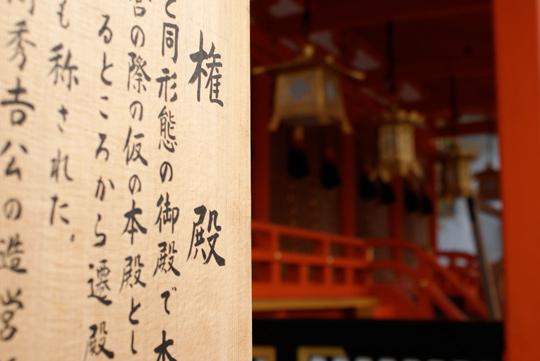 権殿
と同形態の御殿で本
営の際の仮の本殿とし
るところから遷殿
も称された。
秀吉公の造営